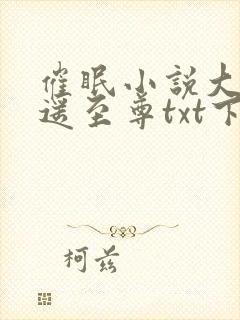 催眠小說大
遥至尊txt下
柯兹